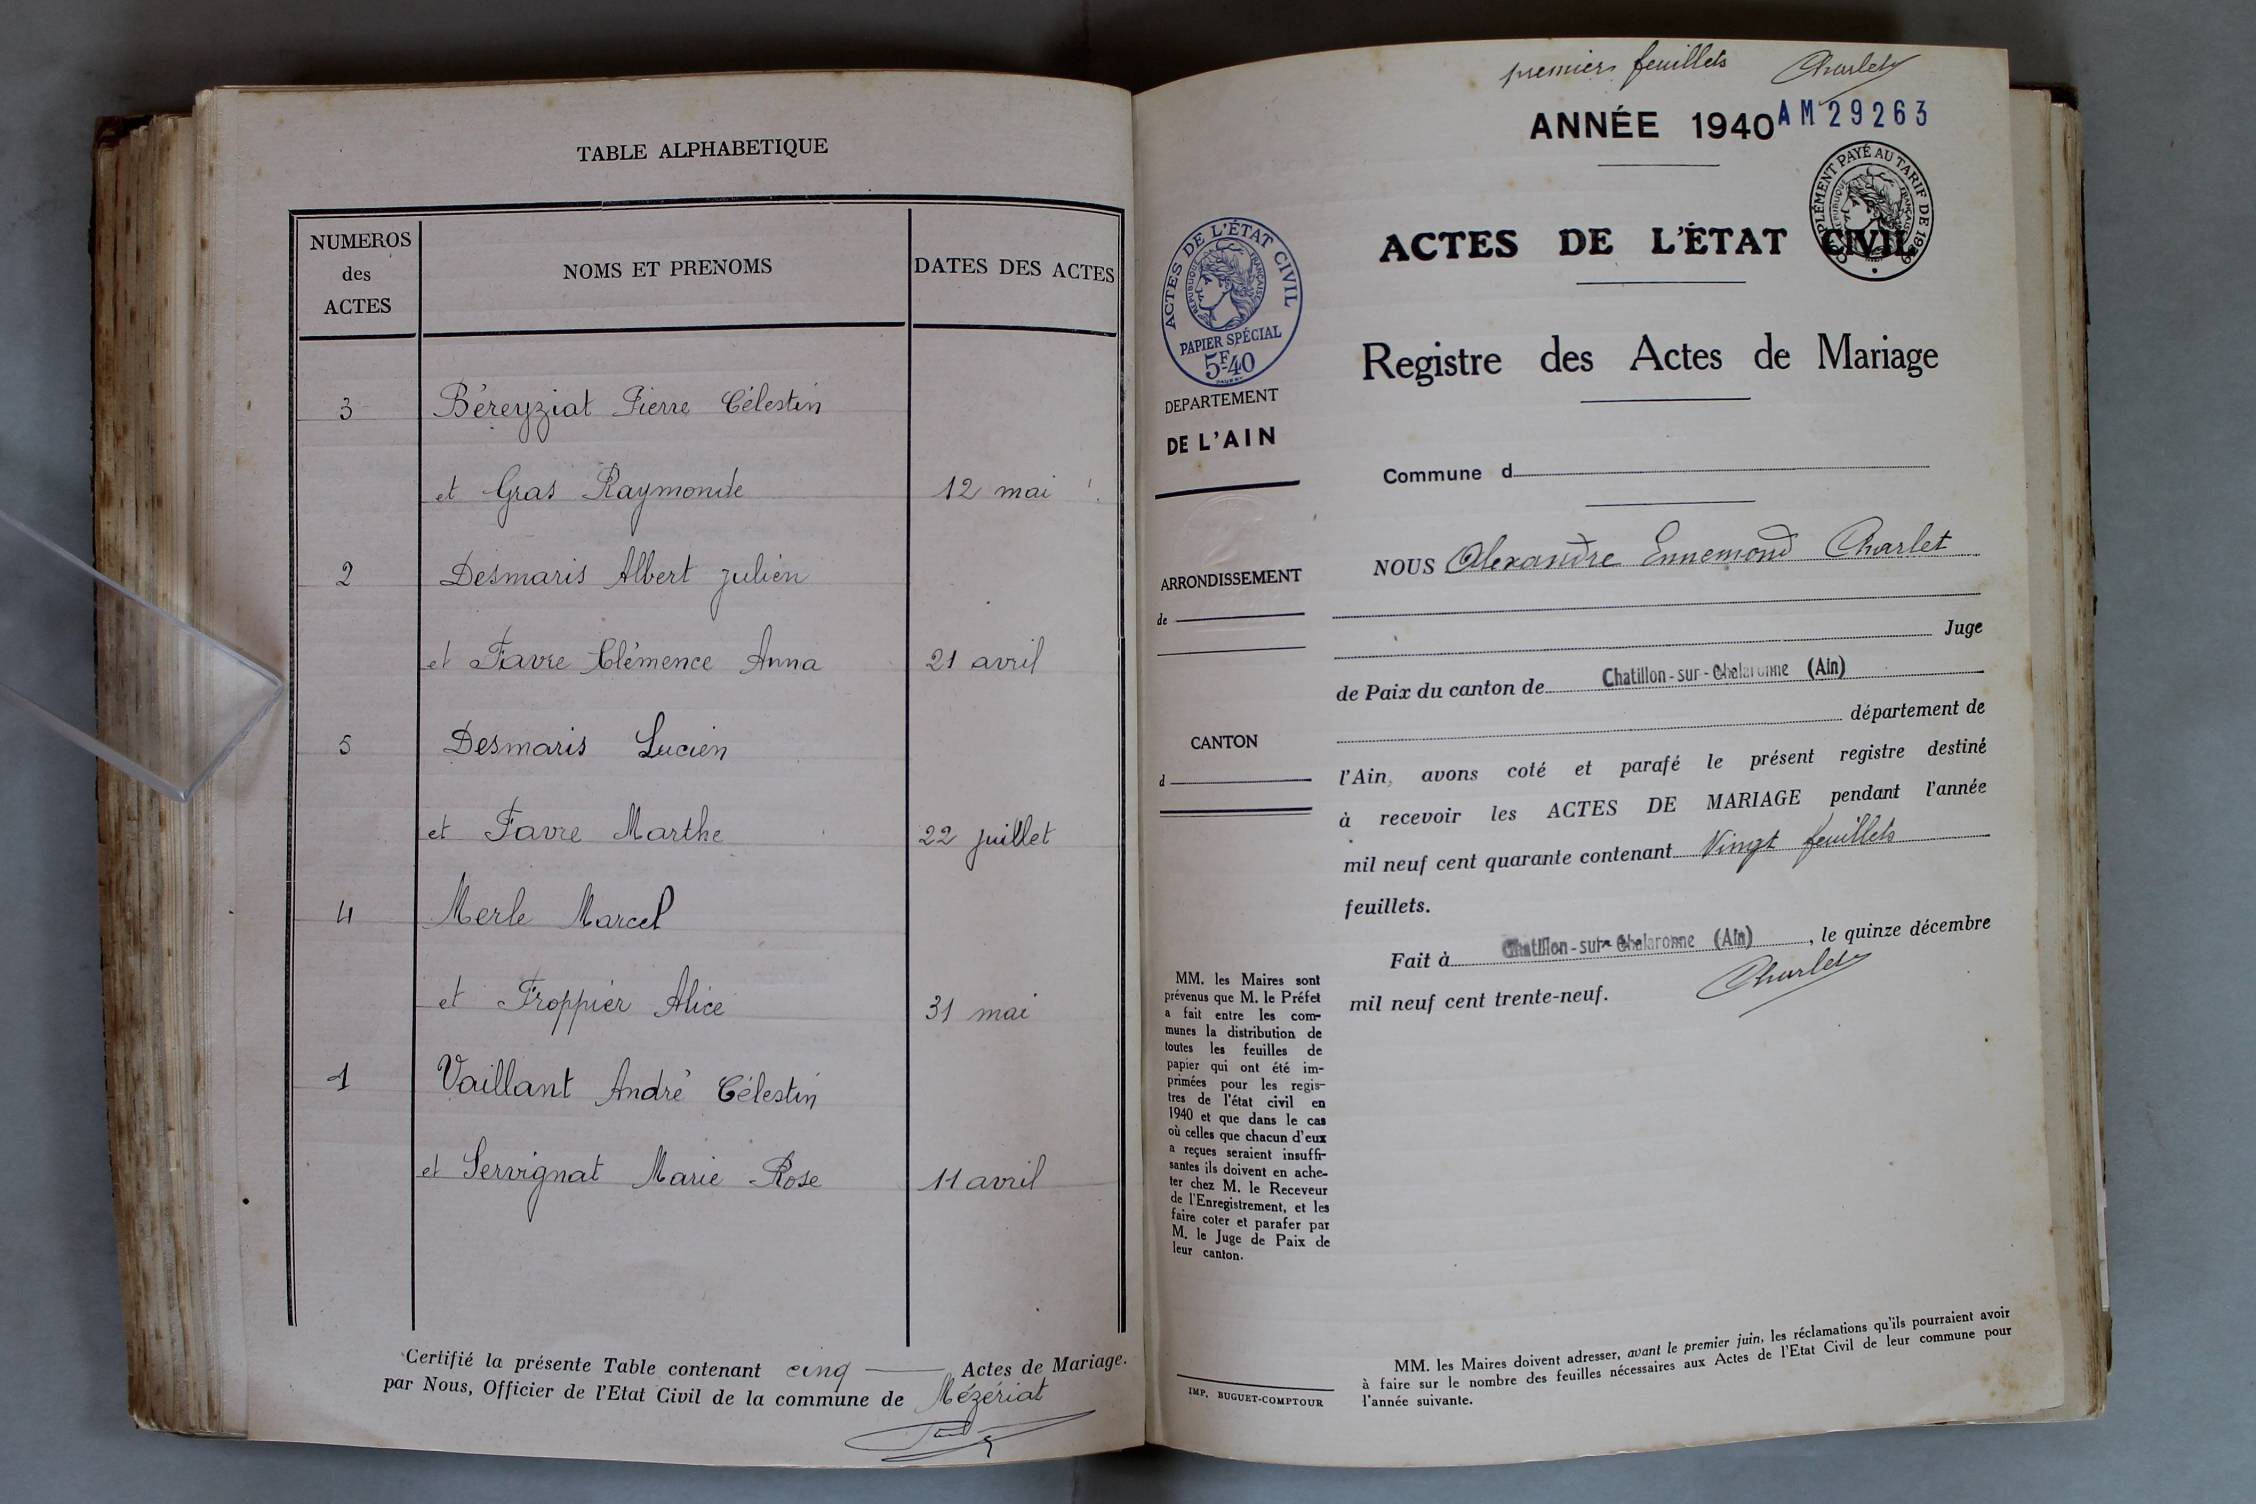 TABLE ALPHABETIQUE
NUMEROS
des
ACTES
NOMS ET PRENOMS
DATES DES ACTES
3 Béreyziat Pierre Célestin
et Gras Raymonde 12 mai
2 Desmaris Albert Julien
et Favre Clémence Anna 21 avril
5 Desmaris Lucien
et Favre Marthe 22 juillet
4 Merle Marcel
et Froppier Alice 31 mai
1 Vaillant André Célestin
et Servignat Marie Rose 11 avril
Certifié la présente Table contenant cinq Actes de Mariage.
par Nous, Officier de l'Etat Civil de la commune de Mézériat
premiers feuillets Charlet
ANNÉE 1940 AM 29263
COMPLÉMENT PAYÉ AU TARIF DE 1939
RÉPUBLIQUE FRANÇAISE
ACTES DE L'ÉTAT CIVIL
Registre des Actes de Mariage
ACTES DE L'ÉTAT CIVIL
RÉPUBLIQUE FRANÇAISE
PAPIER SPÉCIAL
5F40
DEPARTEMENT
DE L'AIN
ARRONDISSEMENT
de
CANTON
d
MM. les Maires sont
prévenus que M. le Préfet
a fait entre les com-
munes la distribution de
toutes les feuilles de
papier qui ont été im-
primées pour les regis-
tres de l'état civil en
1940 et que dans le cas
où celles que chacun d'eux
a reçues seraient insuffi-
santes ils doivent en ache-
ter chez M. le Receveur
de l'Enregistrement, et les
faire coter et parafer par
M. le Juge de Paix de
leur canton.
IMP. BUGUET-COMPTOUR
Commune d
NOUS Alexandre Ennemond Charlet
Juge
de Paix du canton de Chatillon-sur-Chalaronne (Ain)
département de
l'Ain, avons coté et parafé le présent registre destiné
à recevoir les ACTES DE MARIAGE pendant l'année
mil neuf cent quarante contenant Vingt feuillets
feuillets.
Fait à Chatillon-sur-Chalaronne (Ain), le quinze décembre
mil neuf cent trente-neuf. Charlet
MM. les Maires doivent adresser, avant le premier juin, les réclamations qu'ils pourraient avoir
à faire sur le nombre des feuilles nécessaires aux Actes de l'Etat Civil de leur commune pour
l'année suivante.